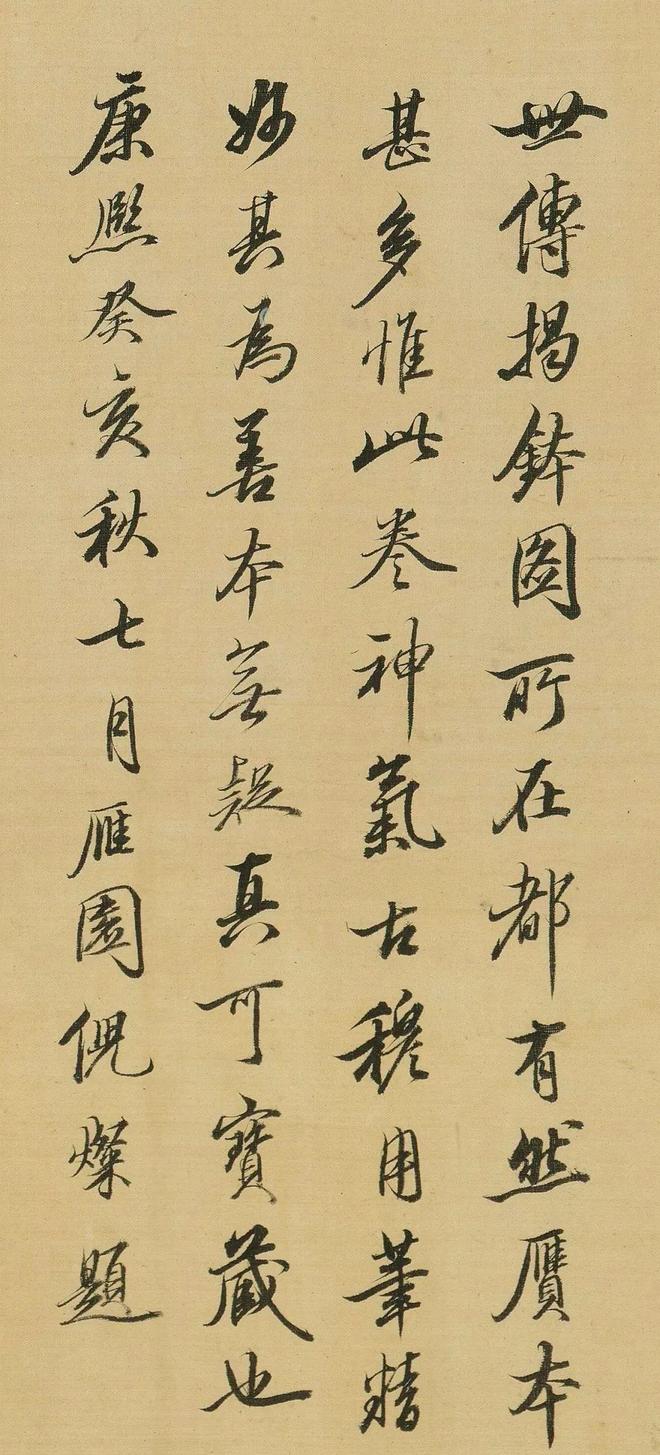 世傳揭鉢圖所在都有然贗本
甚多惟此卷神氣古穆用筆精
妙其為善本無疑真可寶藏也
康熙癸亥秋七月雁園倪燦題